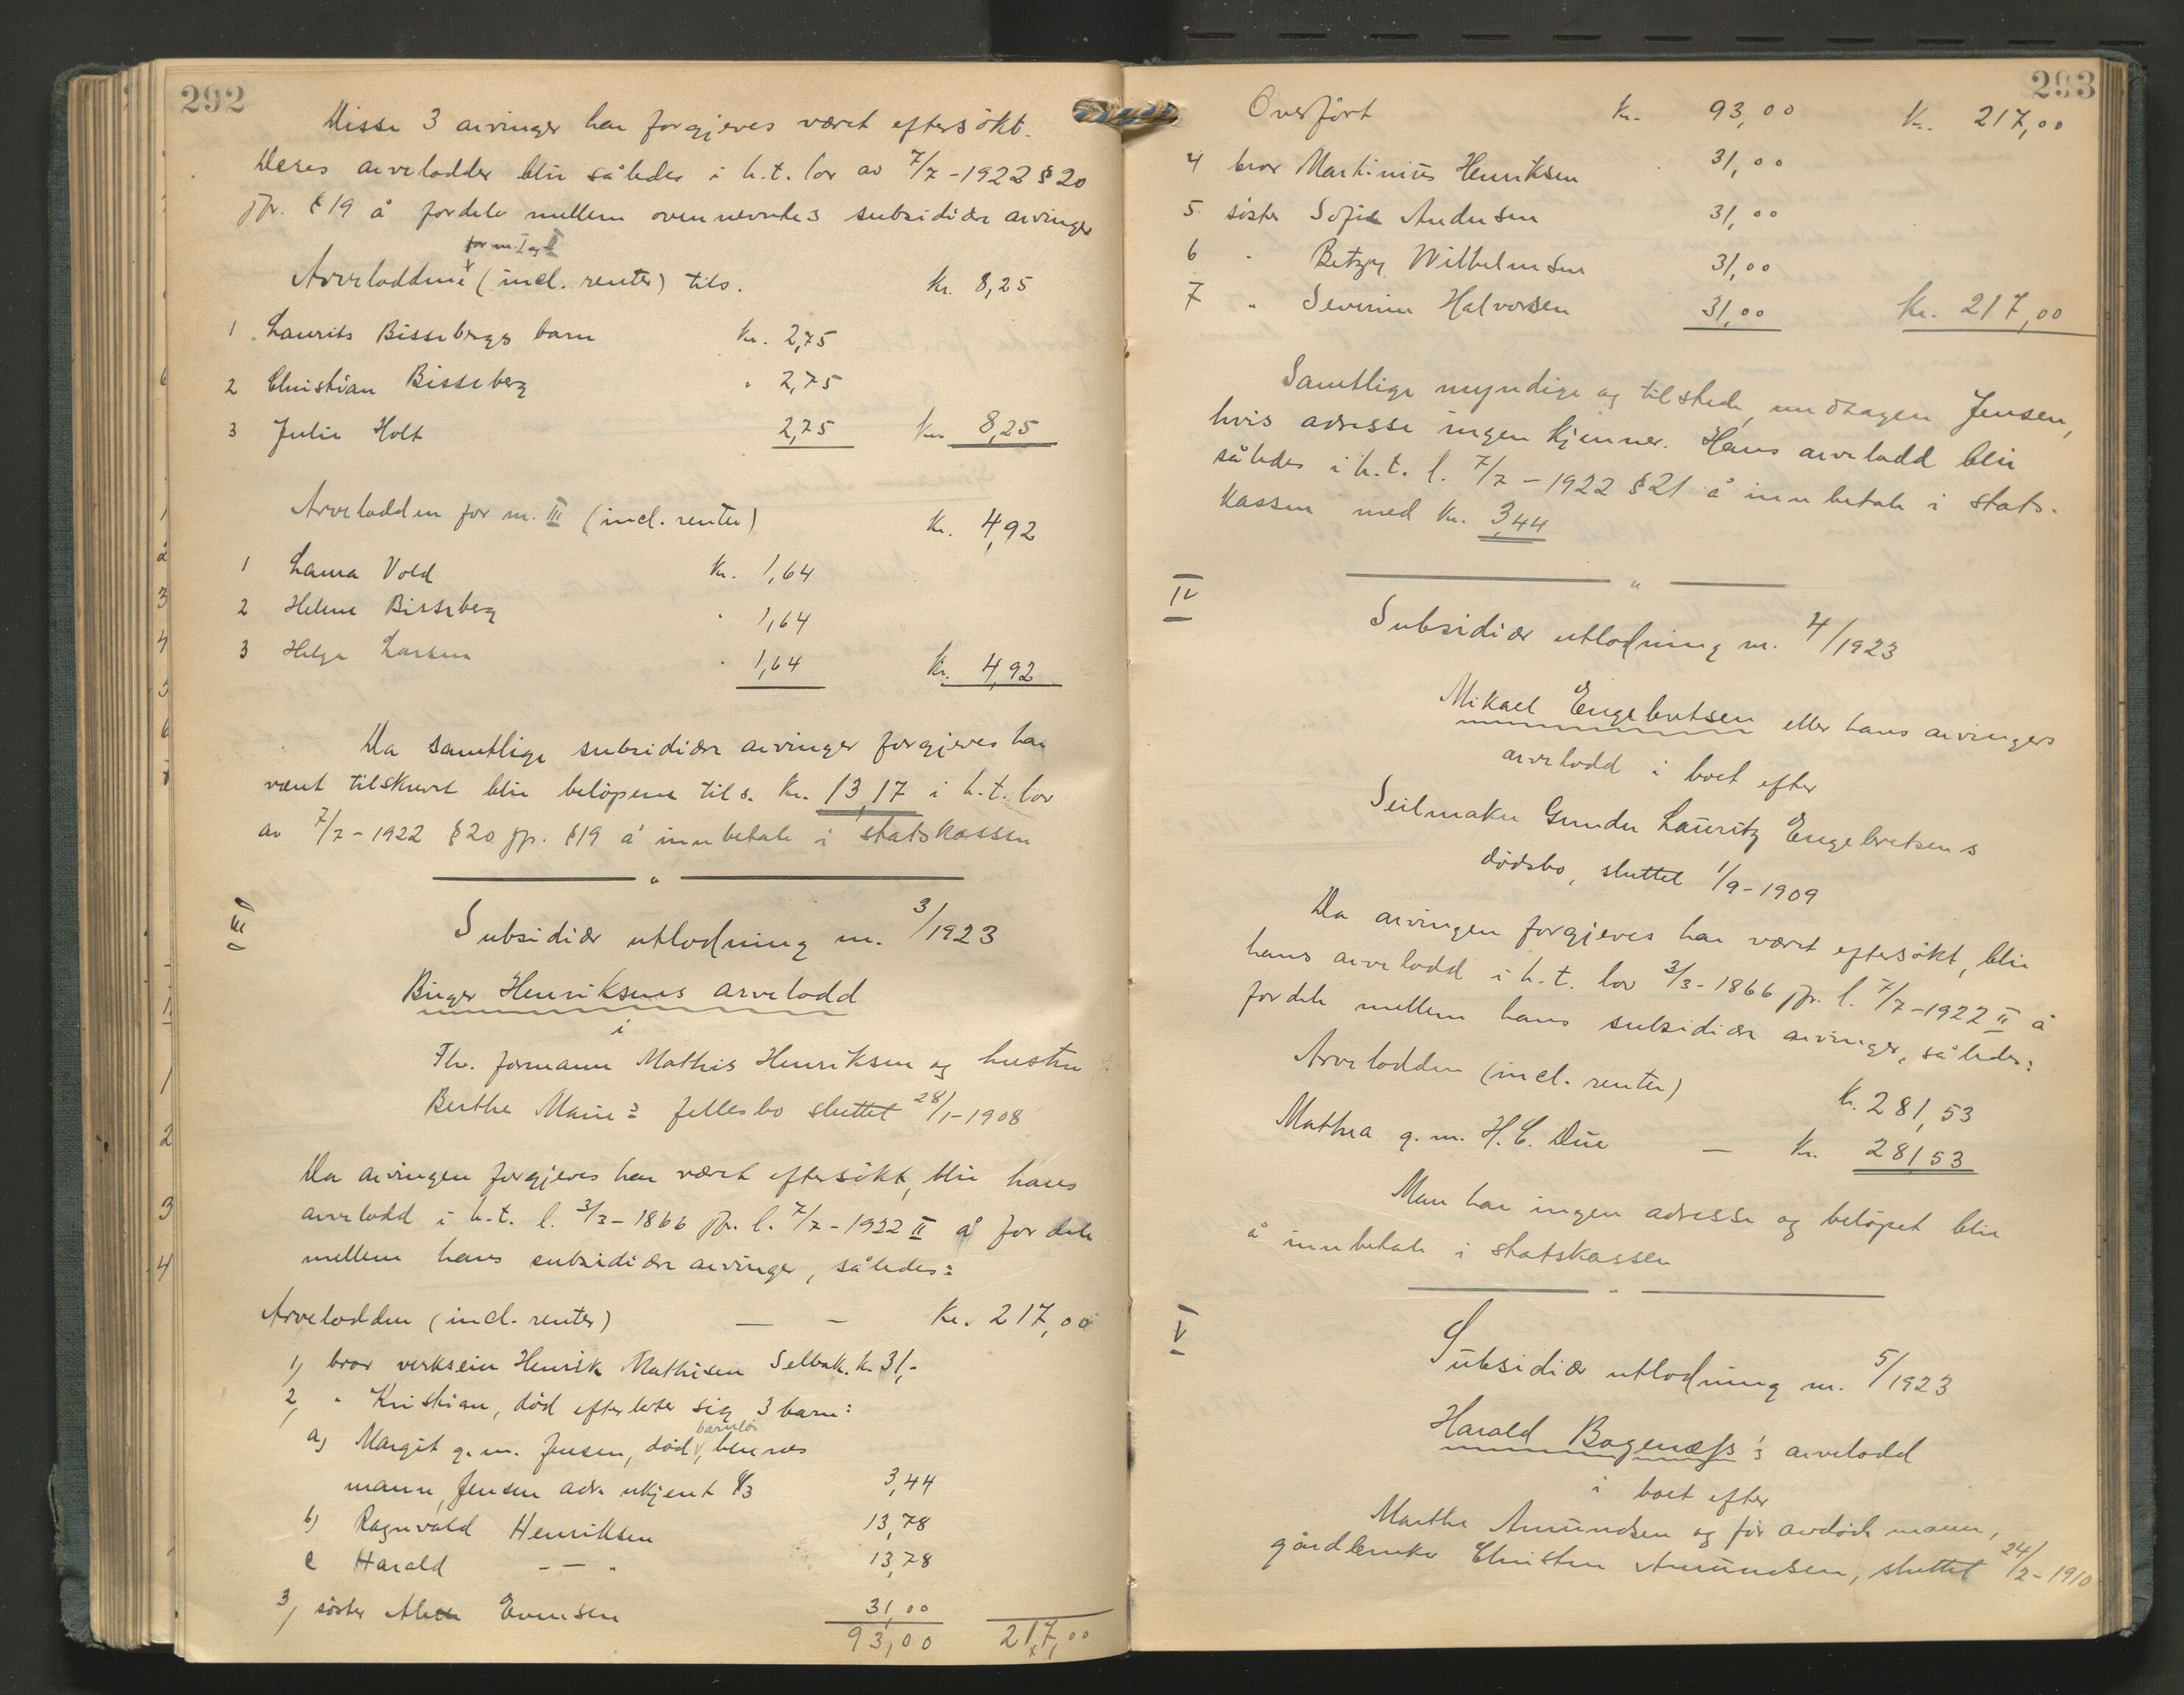 292
Disse 3 arvinger har forgjeves været eftersökt.
Deres arvelodder blir således i h.t. lov av 7/7-1922 § 20
jfr. § 19 å fordele mellem ovennevnte 3 subsidiære arvinger
for nr. I og II
Arveloddene (incl. renter) tils. Kr. 8,25
1 Laurits Bissebergs barn Kr. 2,75
2 Christian Bisseberg " 2,75
3 Julie Holt 2,75 Kr. 8,25
Arvelodden for nr. III (incl. renter) Kr. 4,92
1 Laura Vold Kr. 1,64
2 Helene Bisseberg " 1,64
3 Helga Larsen " 1,64 Kr. 4,92
Da samtlige subsidiære arvinger forgjeves har
været tilskrevet blir belöpene tils. Kr. 13,17 i h.t. lov
av 7/7-1922 § 20 jfr. § 19 å innbetale i statskassen
"
III)
Subsidiær utlodning nr. 3/1923
Birger Henriksens arvelodd
i
Fhv. formann Mathis Henriksen og hustru
Berthe Marie's fellesbo sluttet 28/1-1908
Da arvingen forgjeves har været eftersökt, blir hans
arvelodd i h.t. l. 3/3-1866 jfr. l. 7/7-1922 II å fordele
mellem hans subsidiære arvinger, således:
Arvelodden (incl. renter) — - Kr. 217,00
1) bror verkseier Henrik Mathisen Selbak. kr. 31,-
2) " Kristian, död efterlater sig 3 barn:
barnlös
a) Margit g.m. Jensen, död, hennes
mann, Jensen adr. ukjent 1/3 3,44
b) Ragnvald Henriksen 13,78
c Harald - — " 13,78
3) söster Evensen 31,00
93,00 217,00
293
Overfört Kr. 93,00 Kr. 217,00
4 bror Martinius Henriksen 31,00
5 söster Sofie Andersen 31,00
6 " Betzy Wilhelmsen 31,00
7 " Severine Halvorsen 31,00 Kr. 217,00
Samtlige myndige og tilstede, undtagen Jensen,
hvis adresse ingen kjenner. Hans arvelodd blir
således i h.t. l. 7/7-1922 § 21 å innbetale i stats-
kassen med Kr. 3,44
"
IV
Subsidiær utlodning nr. 4/1923
Mikael Engebretsen eller hans arvingers
arvelodd i boet efter
Seilmaker Gunder Lauritz Engebretsens
dödsbo, sluttet 1/9-1909
Da arvingen forgjeves har været eftersökt, blir
hans arvelodd i h.t. lov 3/3-1866 jfr. l. 7/7-1922 II å
fordele mellem hans subsidiære arvinger, således:
Arvelodden (incl. renter) Kr. 281,53
Mathea g.m. H.C. Due — Kr. 281,53
Man har ingen adresse og belöpet blir
å innbetale i statskassen
"
V
Subsidiær utlodning nr. 5/1923
Harald Bogenæss's arvelodd
i boet efter
Marthe Amundsen og för avdöde mann,
gårdbruker Christen Amundsen, sluttet 24/2-1910